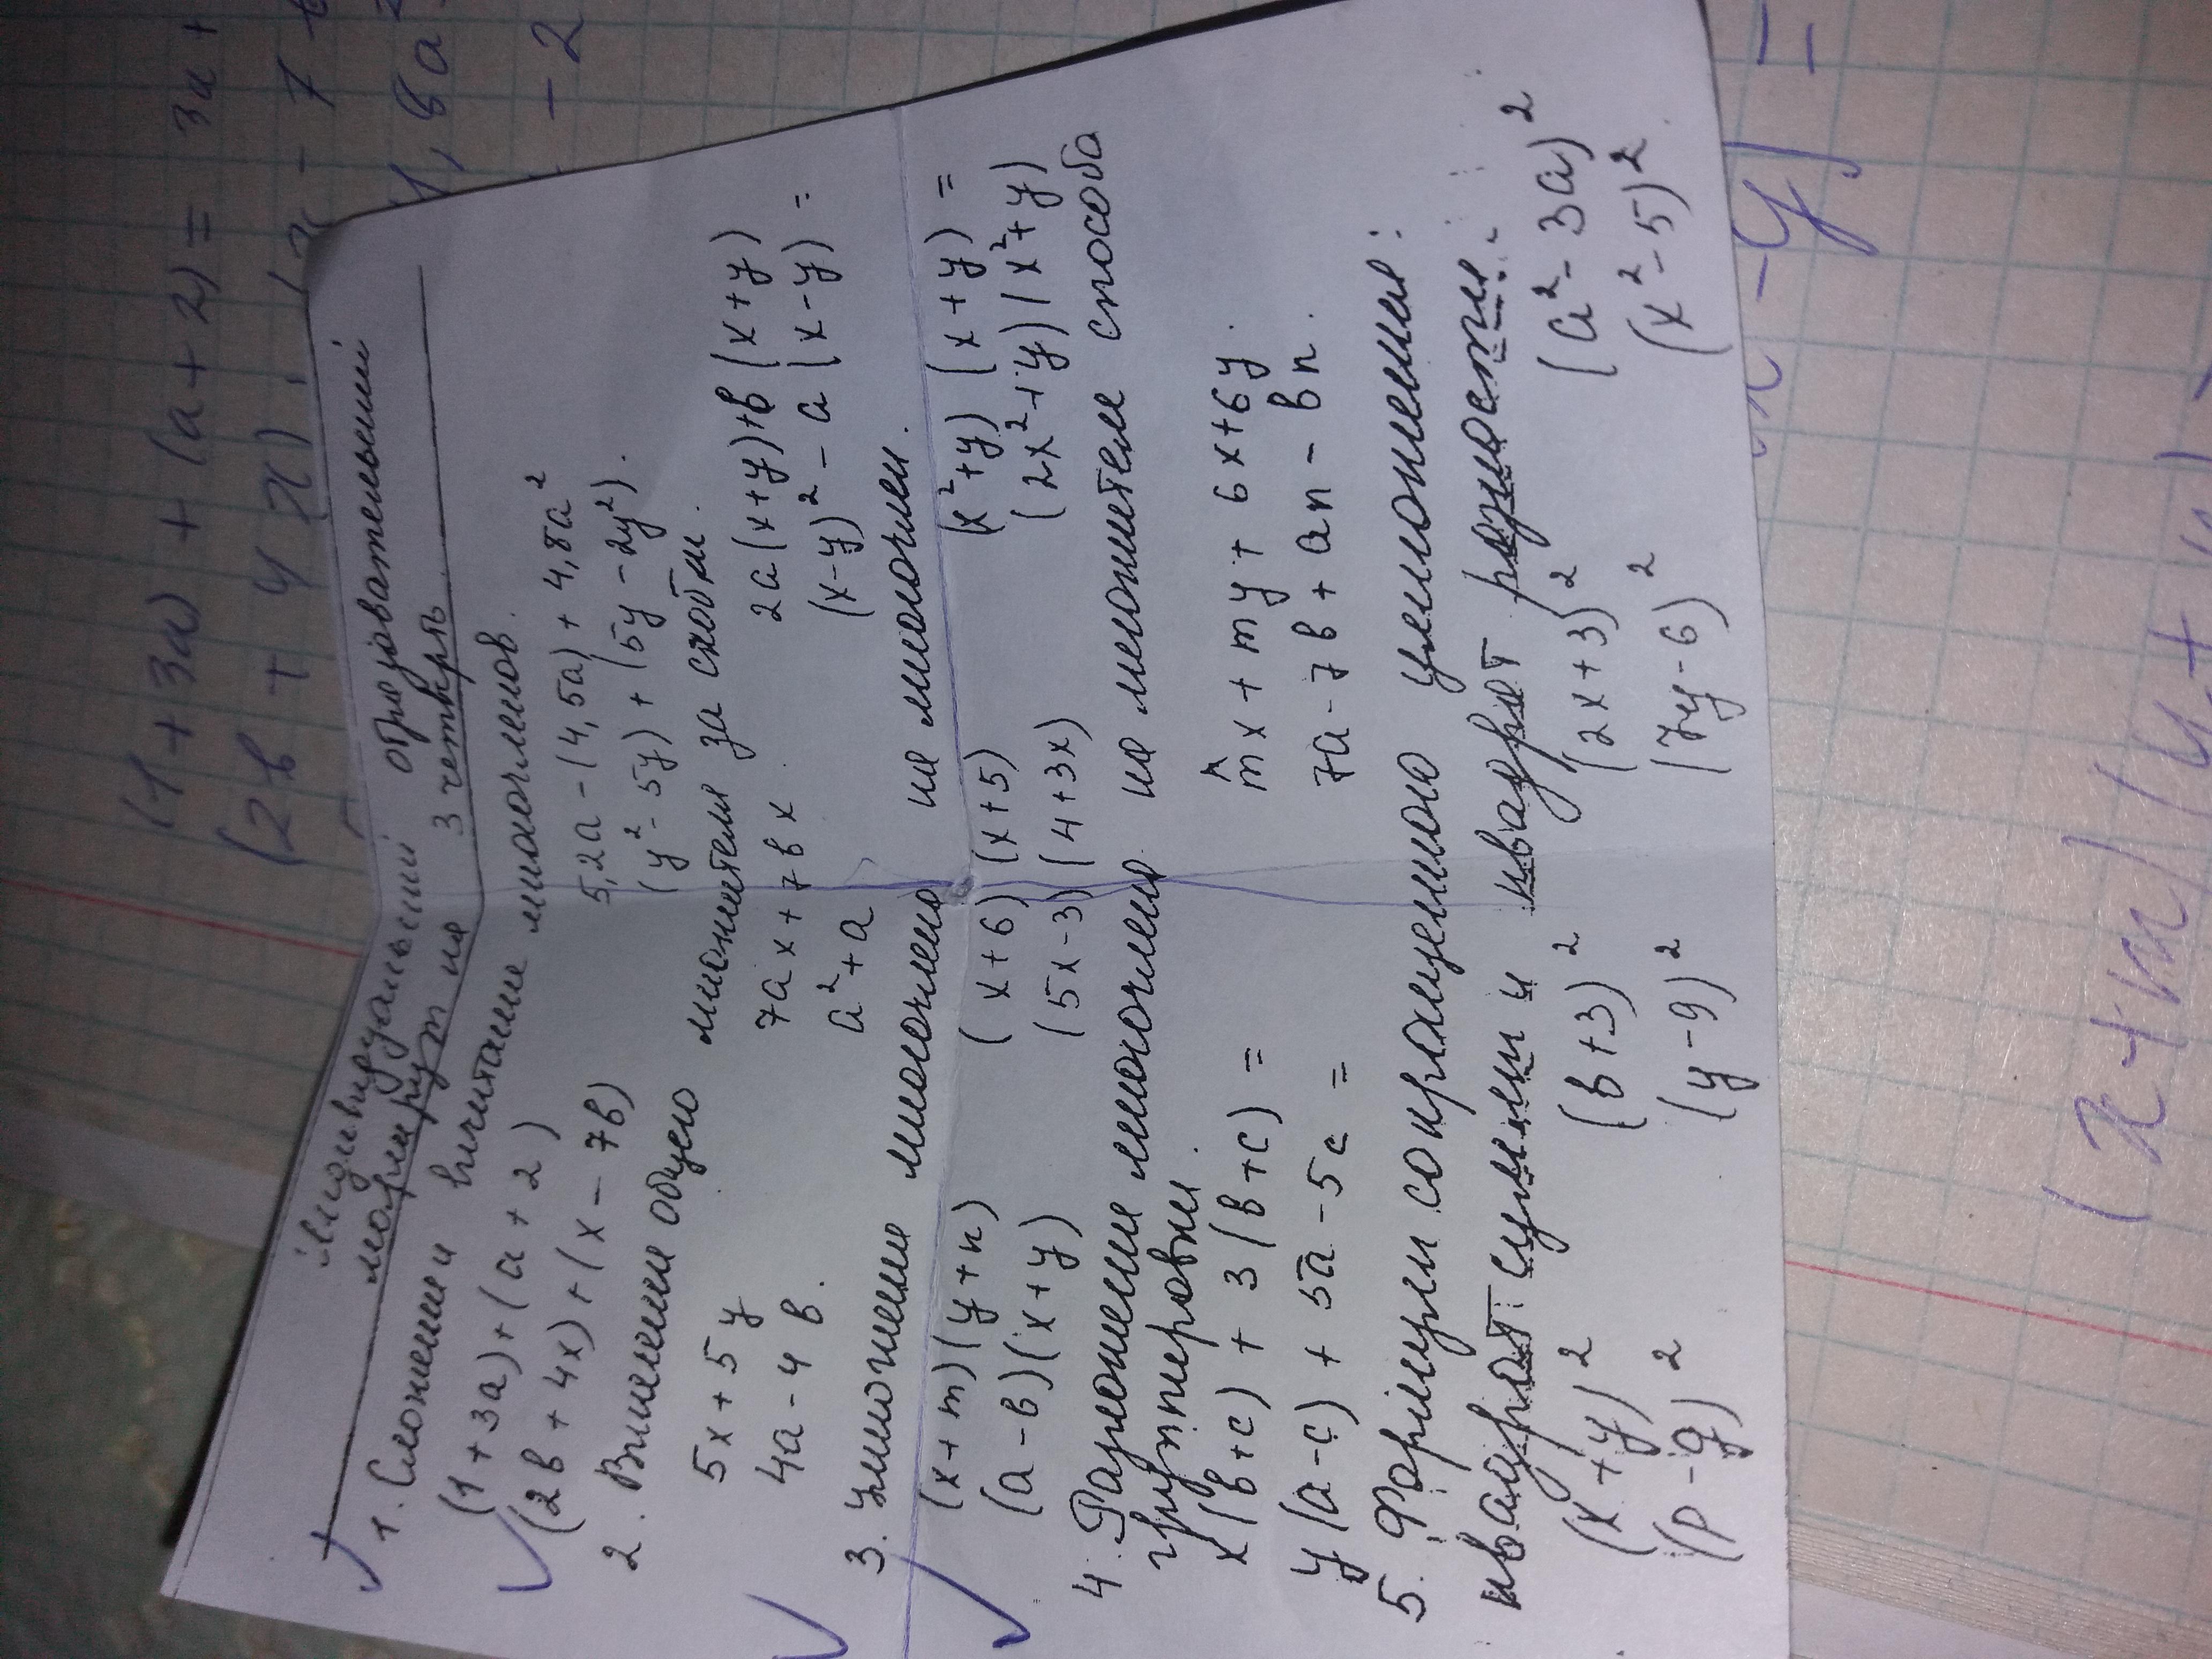 Индивидуальный образовательный
маршрут на 3 четверть
1. Сложении и вычитание многочленов.
(1 + 3a) + (a + 2) 5,2a - (4,5a) + 4,8a²
(2b + 4x) + (x - 7b) (y² - 5y) + (5y - 2y²).
2. Вынесении общего множителя за скобки.
5x + 5y 7ax + 7bx 2a(x+y)+b(x+y)
4a - 4b. a² + a (x-y)² - a(x-y) =
3. Умножении многочлено на многочлен.
(x+m)(y+n) (x+6)(x+5) (x²+y)(x+y) =
(a-b)(x+y) (5x-3)(4+3x) (2x²+y)(x²+y)
4. Разложении многочлено на множители способо
группировки.
x(b+c) + 3(b+c) = mx + my + 6x+6y.
y(a-c) + 5a - 5c = 7a - 7b + an - bn.
5. Формулы сокращенного умножения:
квадрат суммы и квадрат разности.
(x+y)² (b+3)² (2x+3)² (a² - 3a)²
(p-q)² (y-9)² (7y-6)² (x² - 5)²
(1 + 3a) + (a + 2) = 3a +